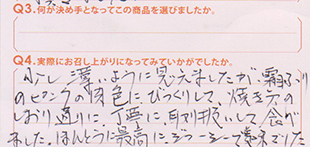 Q3.何が決め手となってこの商品を選びましたか。
Q4.実際にお召し上がりになってみていかがでしたか。
少し薄いように見えましたが、霜ふり
のピンクの色に、びっくりして、焼き方の
しおり通りに、丁寧に取り扱いして食べ
ました。ほんとうに最高に、でした